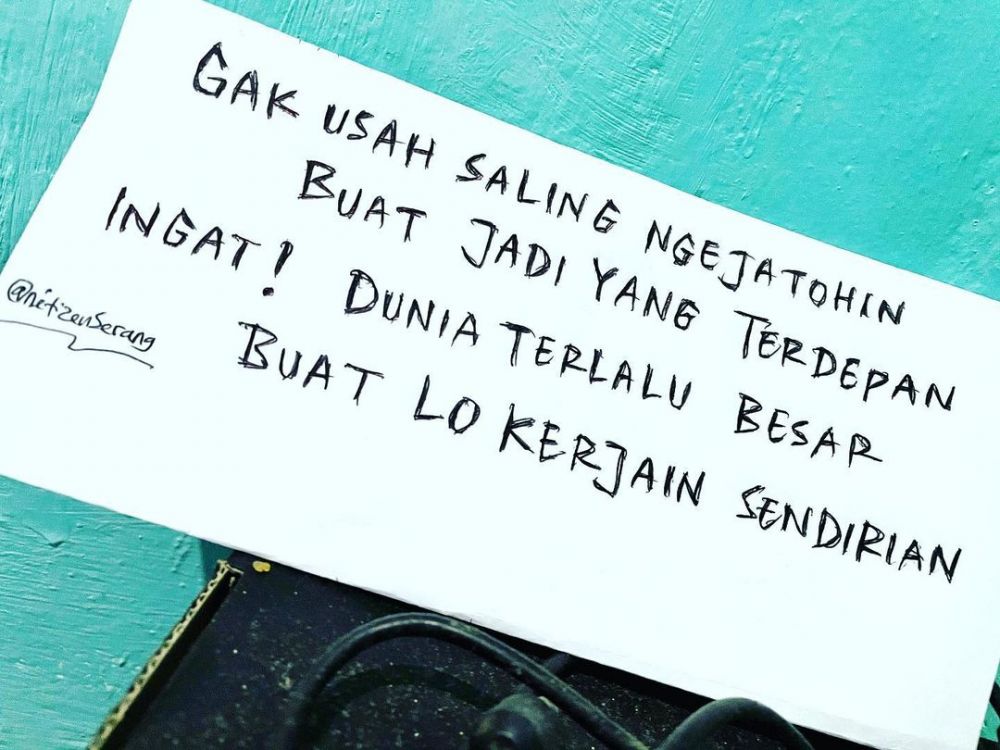 GAK USAH SALING NGEJATOHIN
BUAT JADI YANG TERDEPAN
INGAT! DUNIA TERLALU BESAR
BUAT LO KERJAIN SENDIRIAN
@netizenSerang